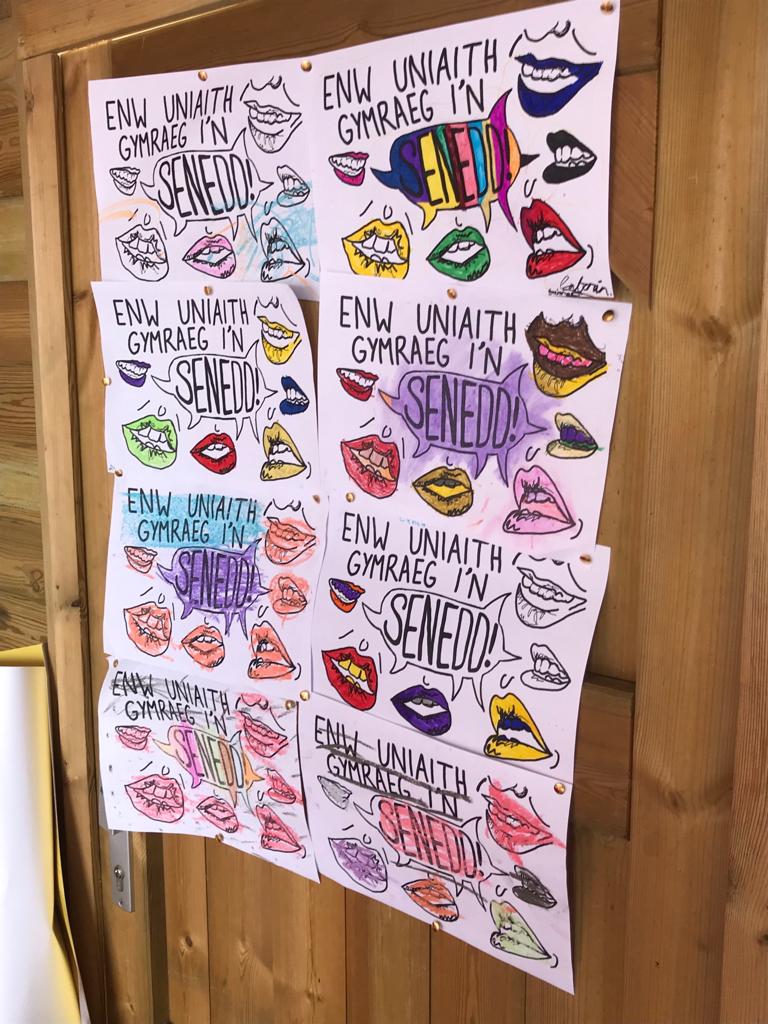 ENW UNIAITH
GYMRAEG I'N
SENEDD!
ENW UNIAITH
GYMRAEG I'N
SENEDD!
ENW UNIAITH
GYMRAEG I'N
SENEDD!
ENW UNIAITH
GYMRAEG I'N
SENEDD!
ENW UNIAITH
GYMRAEG I'N
SENEDD!
ENW UNIAITH
GYMRAEG I'N
SENEDD!
ENW UNIAITH
GYMRAEG I'N
SENEDD!
ENW UNIAITH
GYMRAEG I'N
SENEDD!